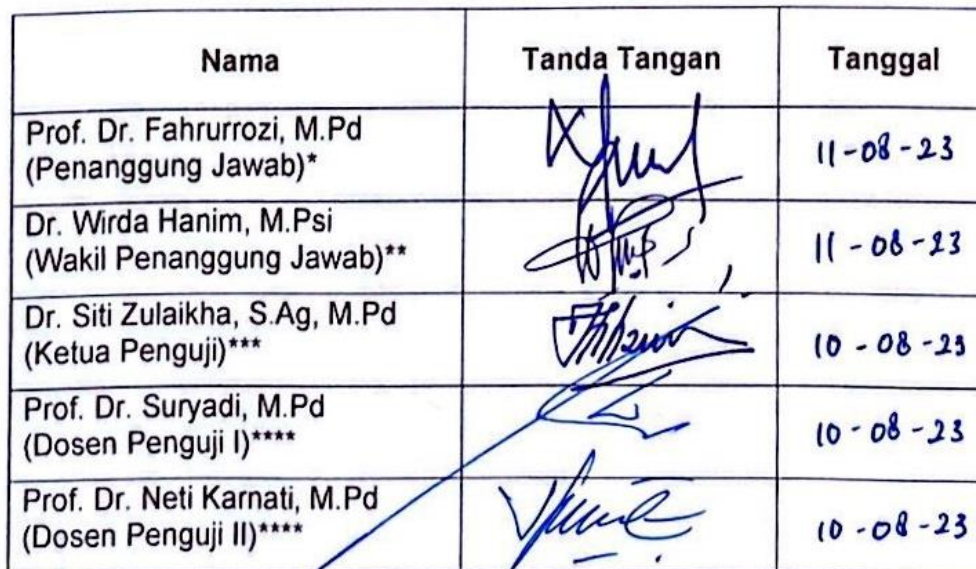 Nama Tanda Tangan Tanggal
Prof. Dr. Fahrurrozi, M.Pd
(Penanggung Jawab)* 11-08-23
Dr. Wirda Hanim, M.Psi
(Wakil Penanggung Jawab)** 11-08-23
Dr. Siti Zulaikha, S.Ag, M.Pd
(Ketua Penguji)*** 10-08-23
Prof. Dr. Suryadi, M.Pd
(Dosen Penguji I)**** 10-08-23
Prof. Dr. Neti Karnati, M.Pd
(Dosen Penguji II)**** 10-08-23